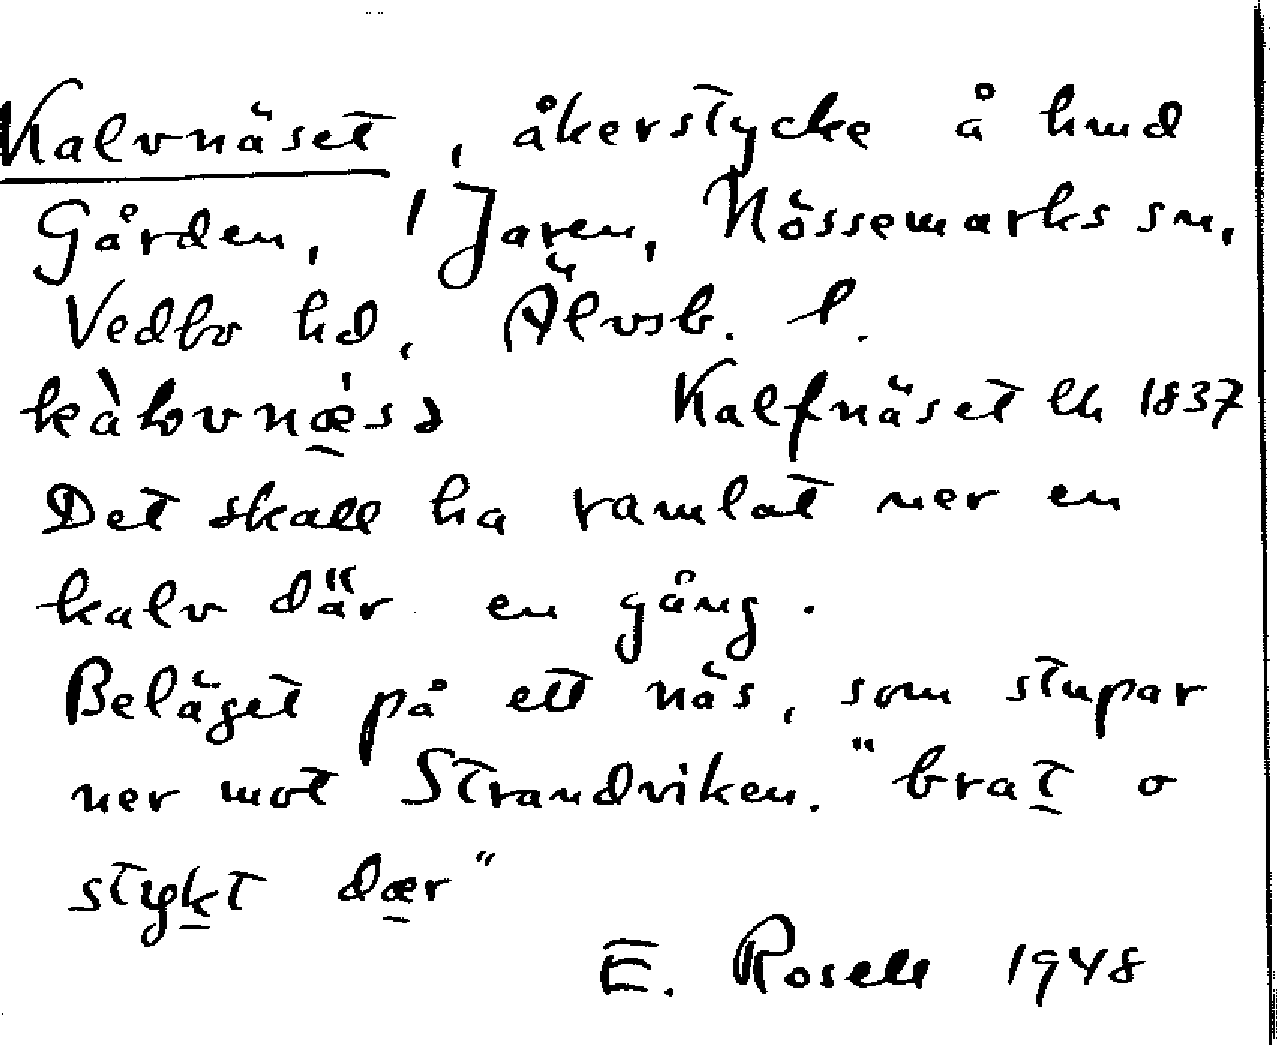 Kalvnäset, åkerstycke å hmd
Gården, 1 Jaren, Nössemarks sn,
Vedbo hd, Älvsb. l.
kȧ̀lovnæ̲̍sə Kalfnäset lh 1837
Det skall ha ramlat ner en
kalv där en gång.
Beläget på ett näs, som stupar
ner mot Strandviken. "brat̲ o
styk̲t dæ̲r"
E. Rosell 1948